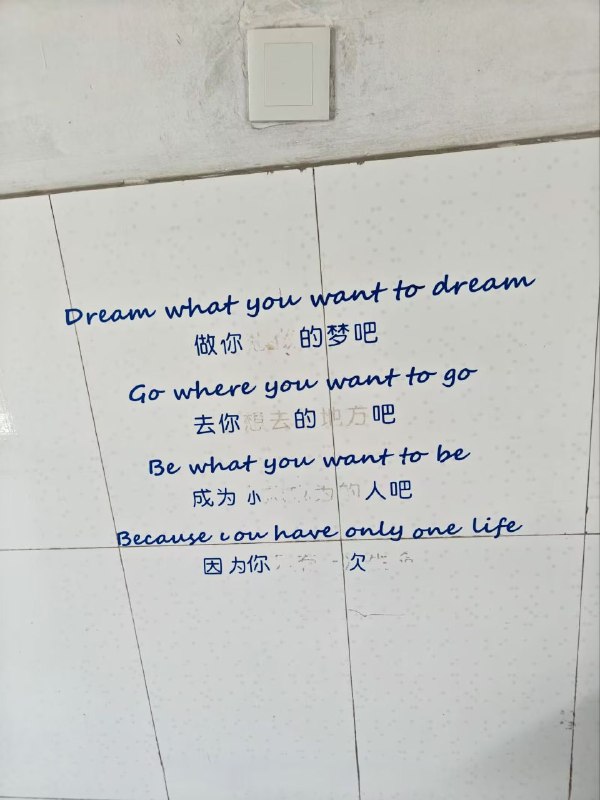 Dream what you want to dream
做你 的梦吧
Go where you want to go
去你想去的地方吧
Be what you want to be
成为 的人吧
Because ou have only one life
因为你 次